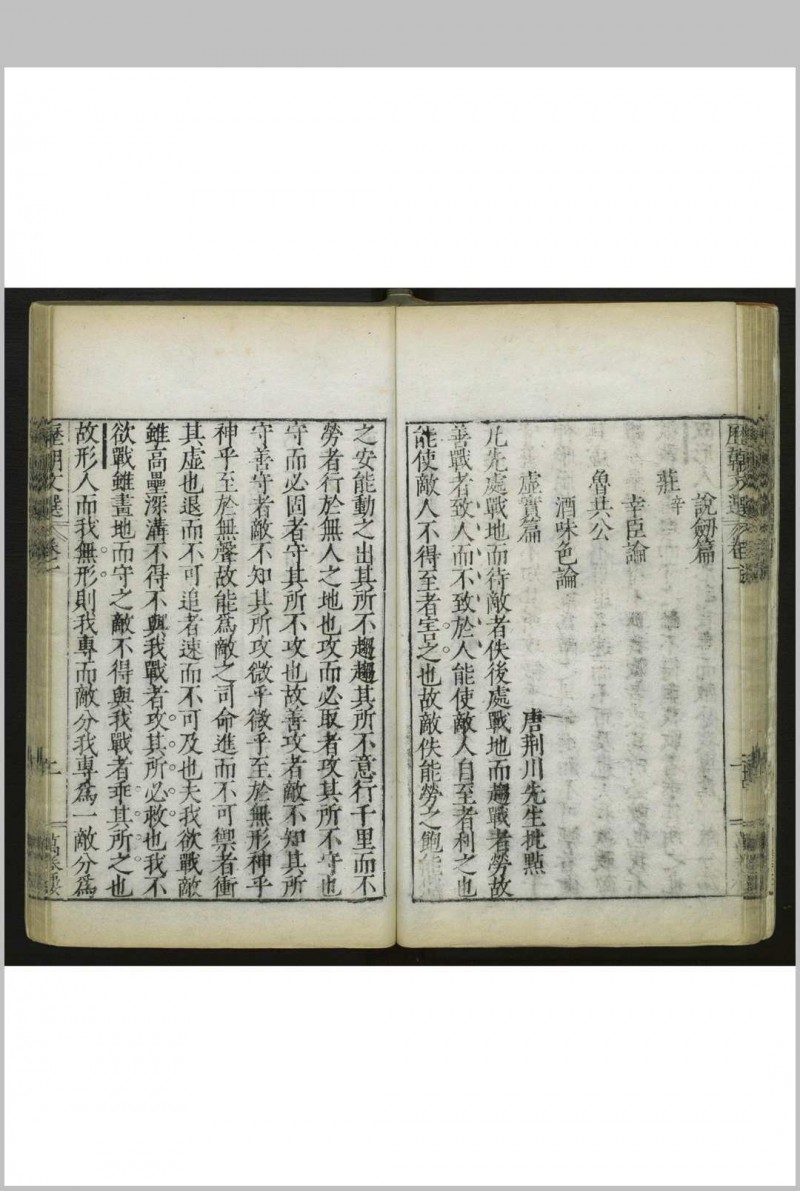 說劒篇
莊辛
幸臣論
魯共公
酒味色論
唐荆川先生批點
虛實篇
凡先處戰地而待敵者佚後處戰地而趨戰者勞故
善戰者致人而不致於人能使敵人自至者利之也
能使敵人不得至者害之也故敵佚能勞之飽能
之安能動之出其所不趨趨其所不意行千里而不
勞者行於無人之地也攻而必取者攻其所不守也
守而必固者守其所不攻也故善攻者敵不知其所
守善守者敵不知其所攻微乎微乎至於無形神乎
神乎至於無聲故能爲敵之司命進而不可禦者衝
其虛也退而不可追者速而不可及也夫我欲戰敵
雖高壘深溝不得不與我戰者攻其所必救也我不
欲戰雖畫地而守之敵不得與我戰者乖其所之也
故形人而我無形則我專而敵分我專爲一敵分爲
歷朝文選
卷一